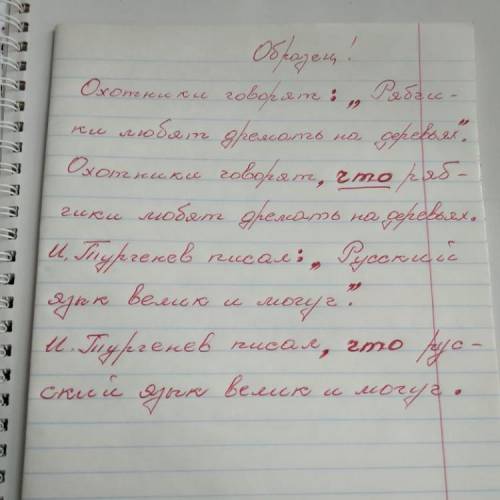 Образец!
Охотники говорят: „Рябчи-
ки любят дремать на деревьях".
Охотники говорят, что ряб-
чики любят дремать на деревьях.
И. Тургенев писал: „Русский
язык велик и могуч."
И. Тургенев писал, что рус-
ский язык велик и могуч.